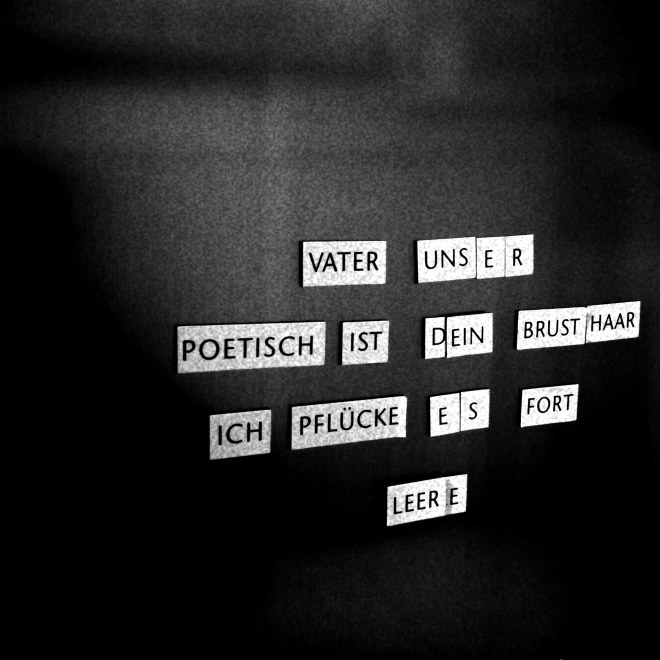 VATER UNSER
POETISCH IST DEIN BRUSTHAAR
ICH PFLÜCKE ES FORT
LEERE